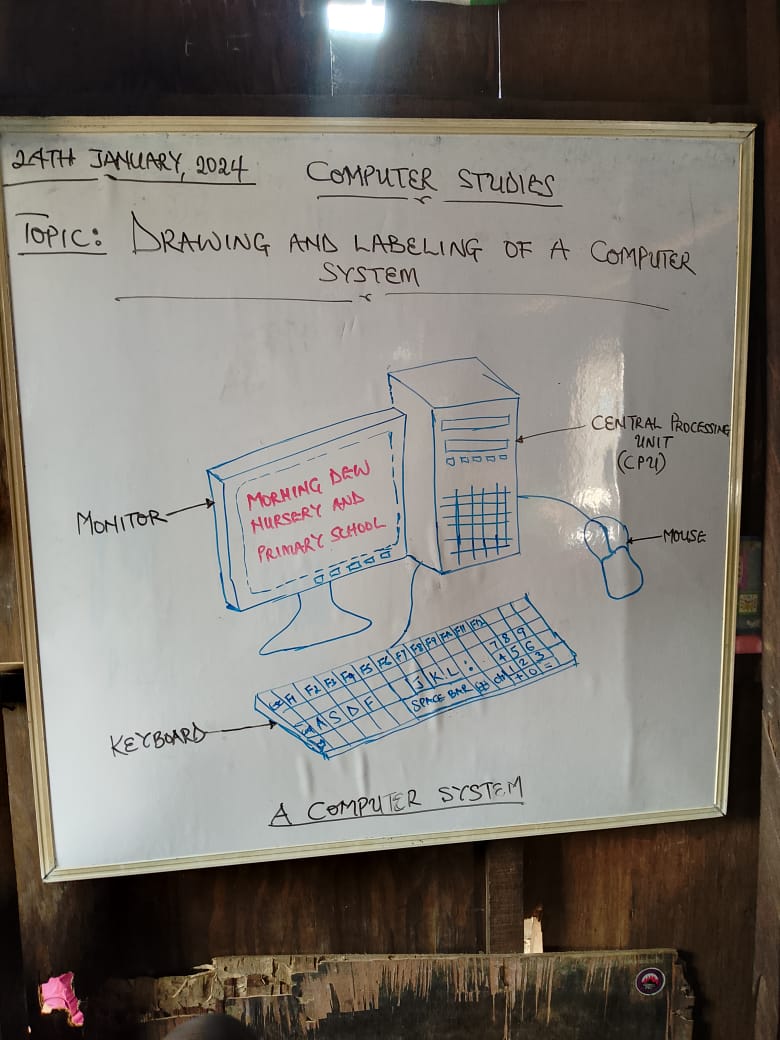 24TH JANUARY, 2024
COMPUTER STUDIES
TOPIC: DRAWING AND LABELING OF A COMPUTER
SYSTEM
CENTRAL PROCESSING
UNIT
(CPU)
MORNING DEW
NURSERY AND
PRIMARY SCHOOL
MONITOR
MOUSE
F1 F2 F3 F4 F5 F6 F7 F8 F9 F10 F11 F12
7 8 9
J K L :
4 5 6
A S D F
1 2 3
SPACE BAR
ctrl
+ 0 =
KEYBOARD
A COMPUTER SYSTEM